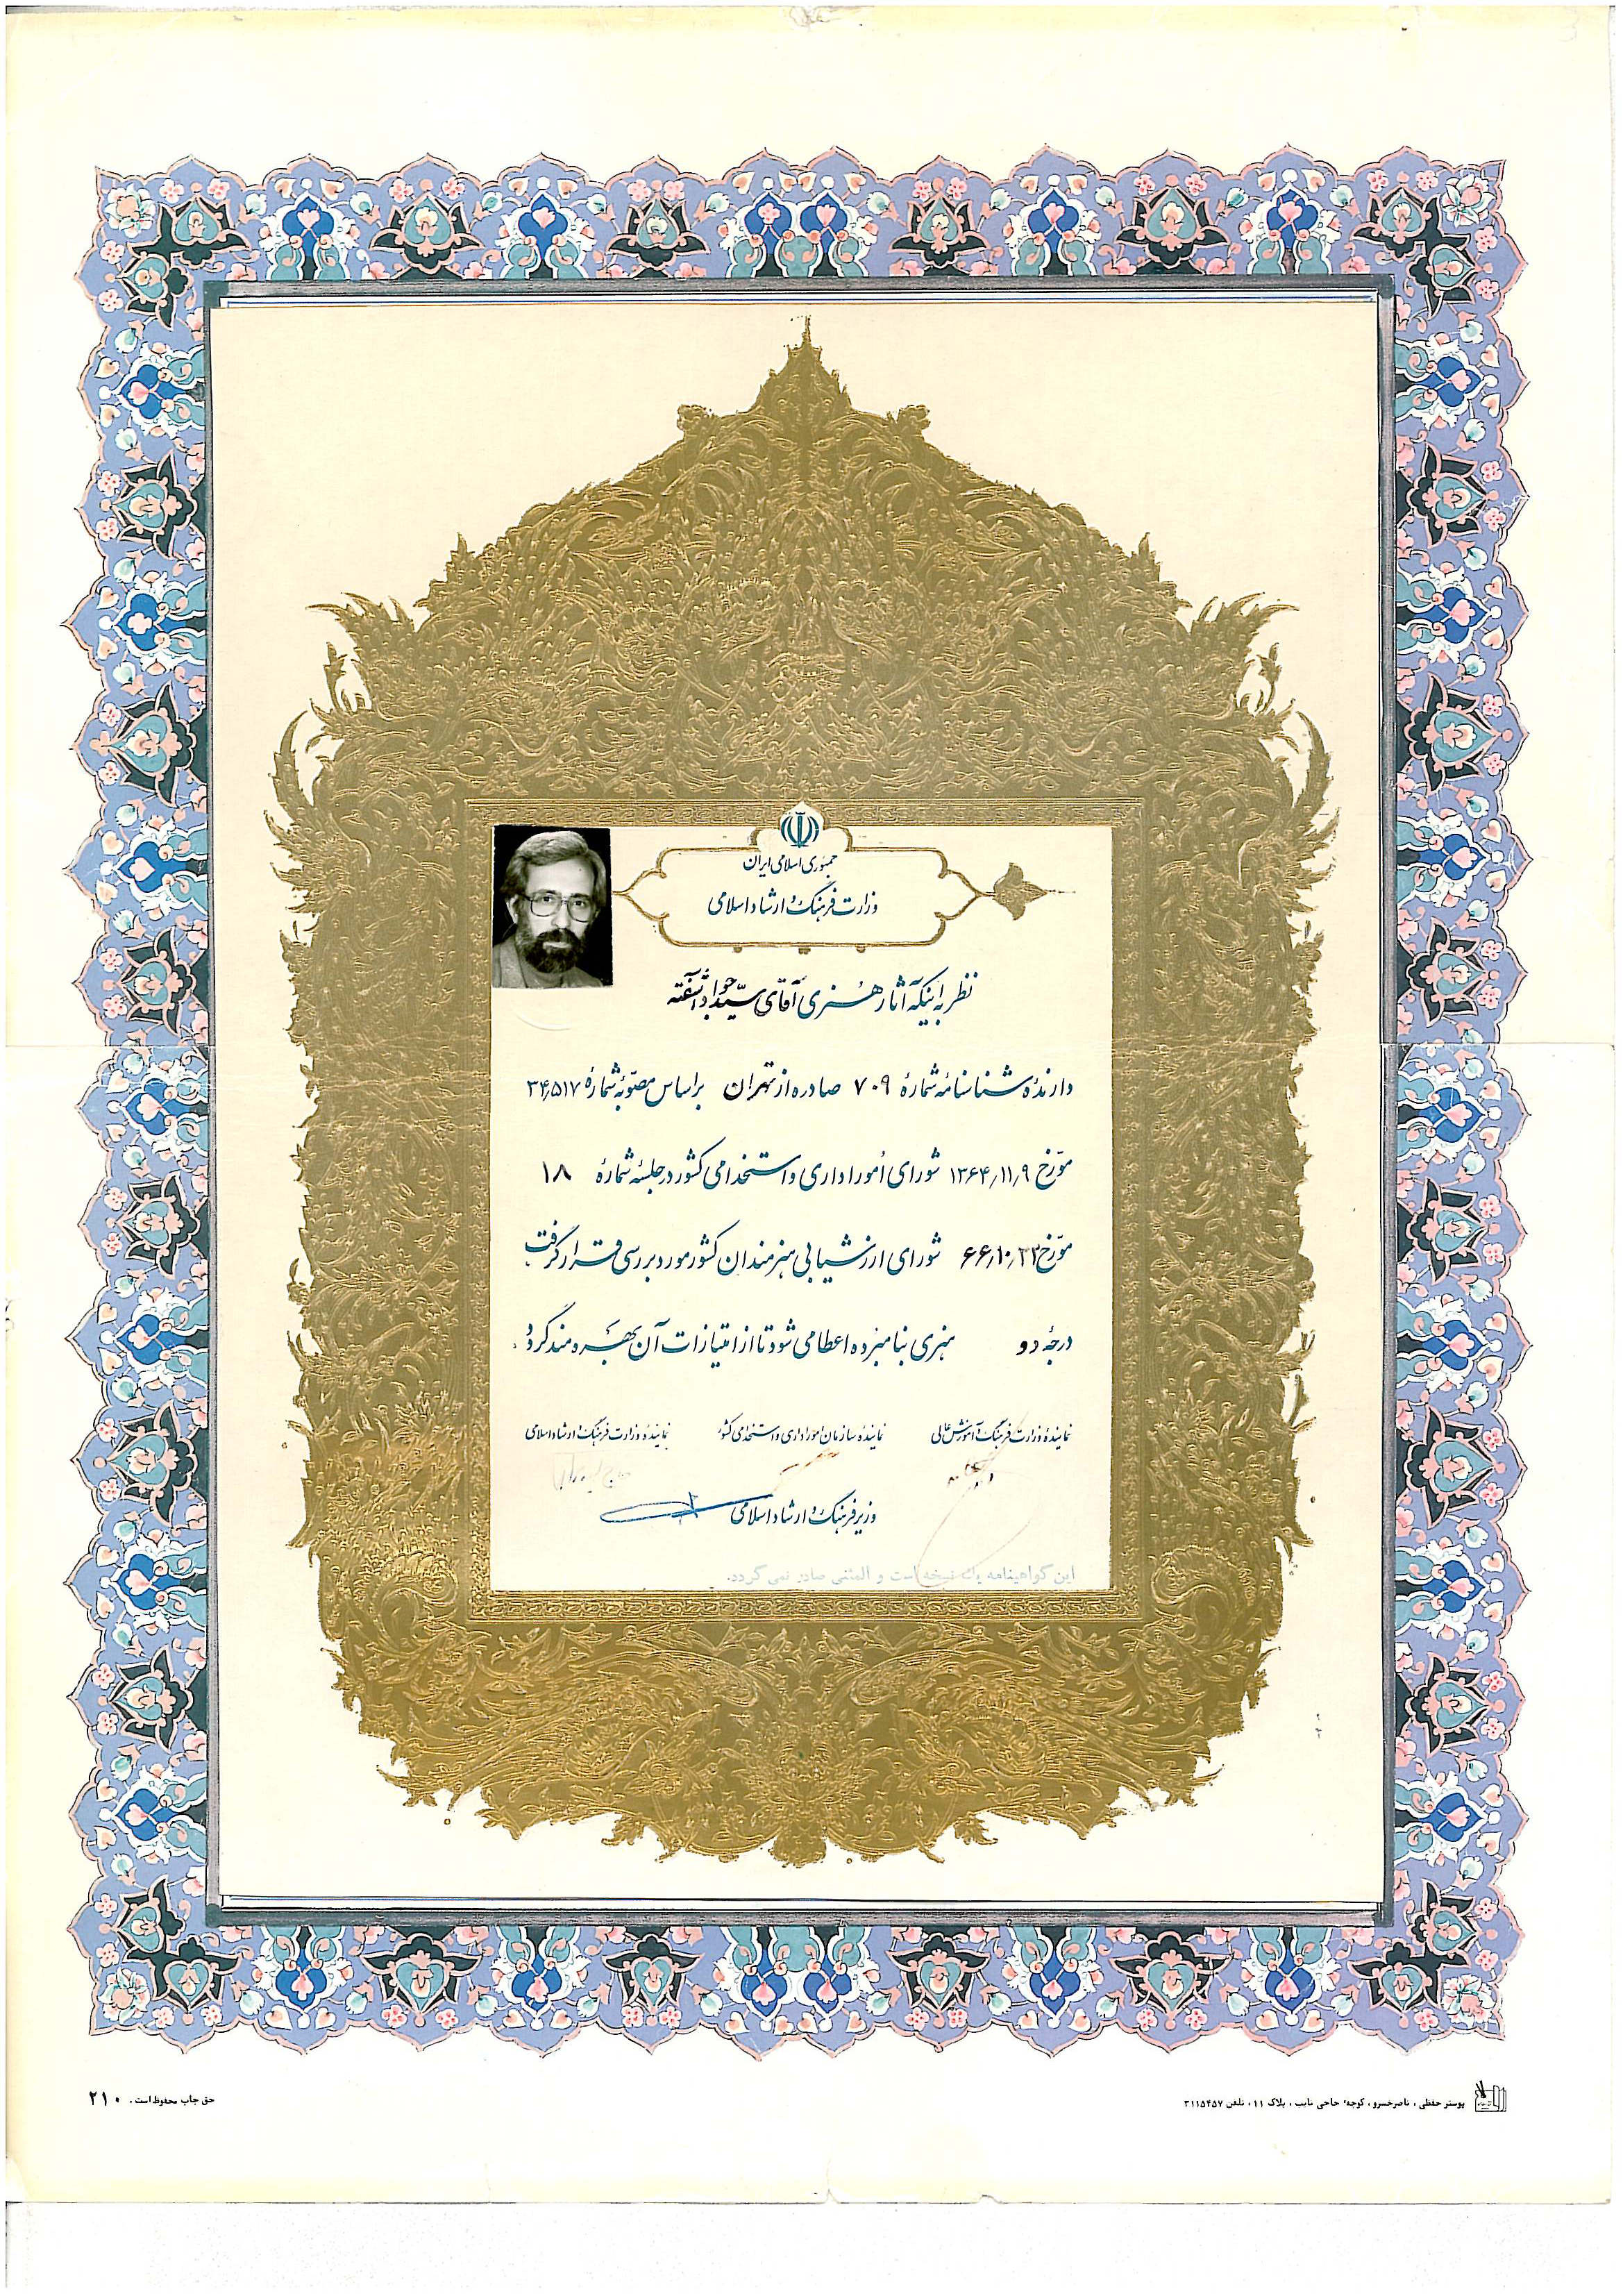 جمهوری اسلامی ایران
وزارت فرهنگ و ارشاد اسلامی
نظر به اینکه آثار هنری آقای سید جواد آشفته
دارندهٔ شناسنامه شمارهٔ ۷۰۹ صادره از تهران براساس مصوبهٔ شمارهٔ ۳۴٫۵۱۷
مورّخ ۱۳۶۴٫۱۱٫۹ شورای امور اداری و استخدامی کشور در جلسهٔ شمارهٔ ۱۸
مورّخ ۶۶٫۱۰٫ شورای ارزشیابی هنرمندان کشور مورد بررسی قرار گرفت
درجهٔ دو هنری بنامبرده اعطا می شود تا از امتیازات آن بهره مند گردد.
نمایندهٔ وزارت فرهنگ و آموزش عالی نمایندهٔ سازمان امور اداری و استخدامی کشور نمایندهٔ وزارت فرهنگ و ارشاد اسلامی
وزیر فرهنگ و ارشاد اسلامی
این گواهینامه یک نسخه است و المثنی صادر نمی گردد.
پوستر حفظی ، ناصرخسرو ، کوچهٔ حاجی نایب ، پلاک ۱۱ ، تلفن ۳۱۱۵۴۵۷ حق چاپ محفوظ است . ۲۱۰